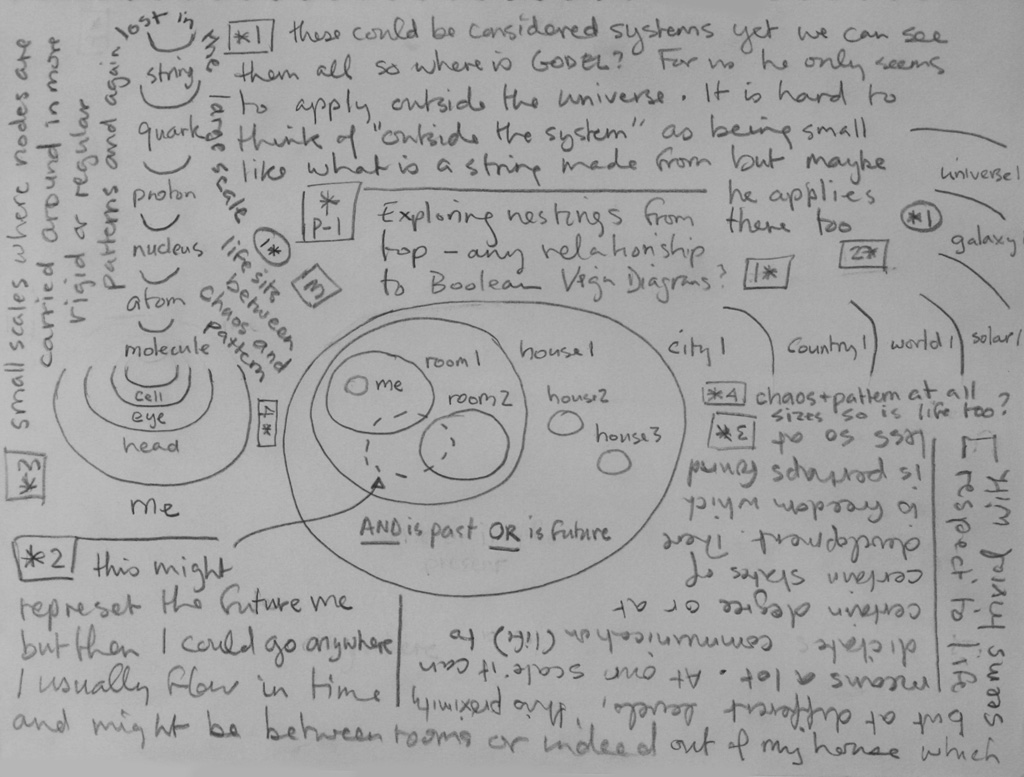 *1 these could be considered systems yet we can see
them all so where is GODEL? For no he only seems
to apply outside the universe. It is hard to
think of "outside the system" as being small
like what is a string made from but maybe
he applies
there too
2*
*
P-1
Exploring nestings from
top - any relationship
to Boolean Vign Diagrams?
1*
lost in
the large scale
1*
3
life sits
between
chaos and
pattern
4*
string
quark
proton
nucleus
atom
molecule
cell
eye
head
me
*3
small scales where nodes are
carried around in more
rigid or regular
patterns and again
*1
universe1
galaxy
solar1
world1
country1
city1
house1
house2
house3
room1
room2
me
AND is past OR is future
*4 chaos+pattern at all
sizes so is life too?
*2 this might
represet the future me
but then I could go anywhere
I usually flow in time
and might be between rooms or indeed out of my house which
means
respect to life
but at different levels, this proximity
means a lot. At our scale it can
dictate communication (life) to
certain degree or at
certain states of
development. There
is freedom which
is perhaps found
less so at
*3